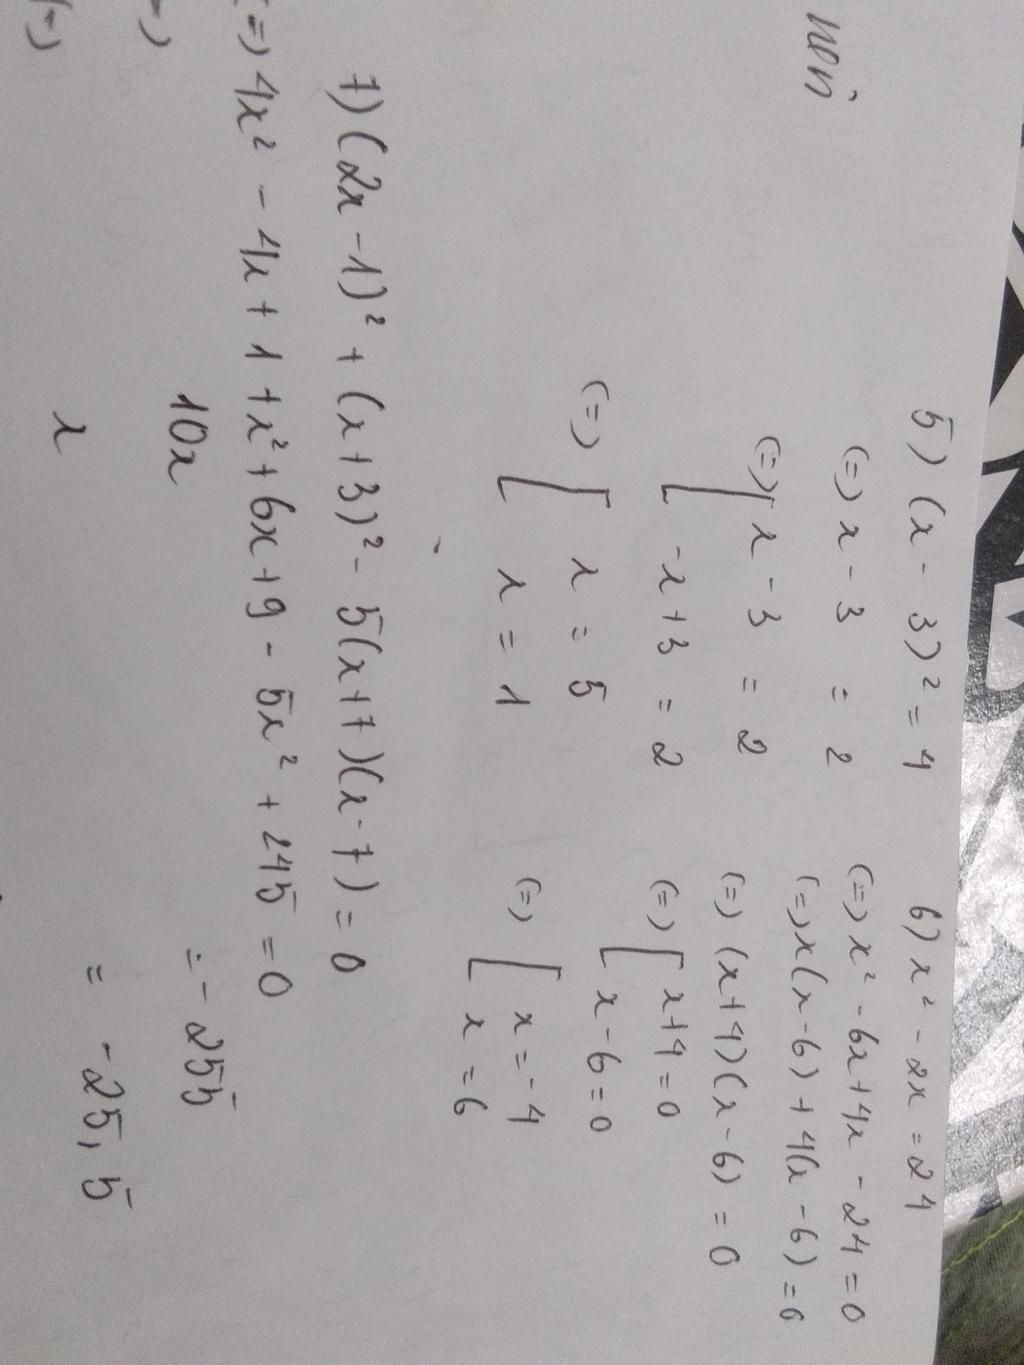 noi
5) (x - 3)² = 4
(=) x - 3 = 2
(=) [ x - 3 = 2
-x + 3 = 2
(=) [ x = 5
x = 1
6) x² - 2x = 24
(=) x² - 6x + 4x - 24 = 0
(=) x(x - 6) + 4(x - 6) = 0
(=) (x + 4)(x - 6) = 0
(=) [ x + 4 = 0
x - 6 = 0
(=) [ x = -4
x = 6
7) (2x - 1)² + (x + 3)² - 5(x + 7)(x - 7) = 0
(=) 4x² - 4x + 1 + x² + 6x + 9 - 5x² + 245 = 0
=) 10x = - 255
(=) x = - 25,5